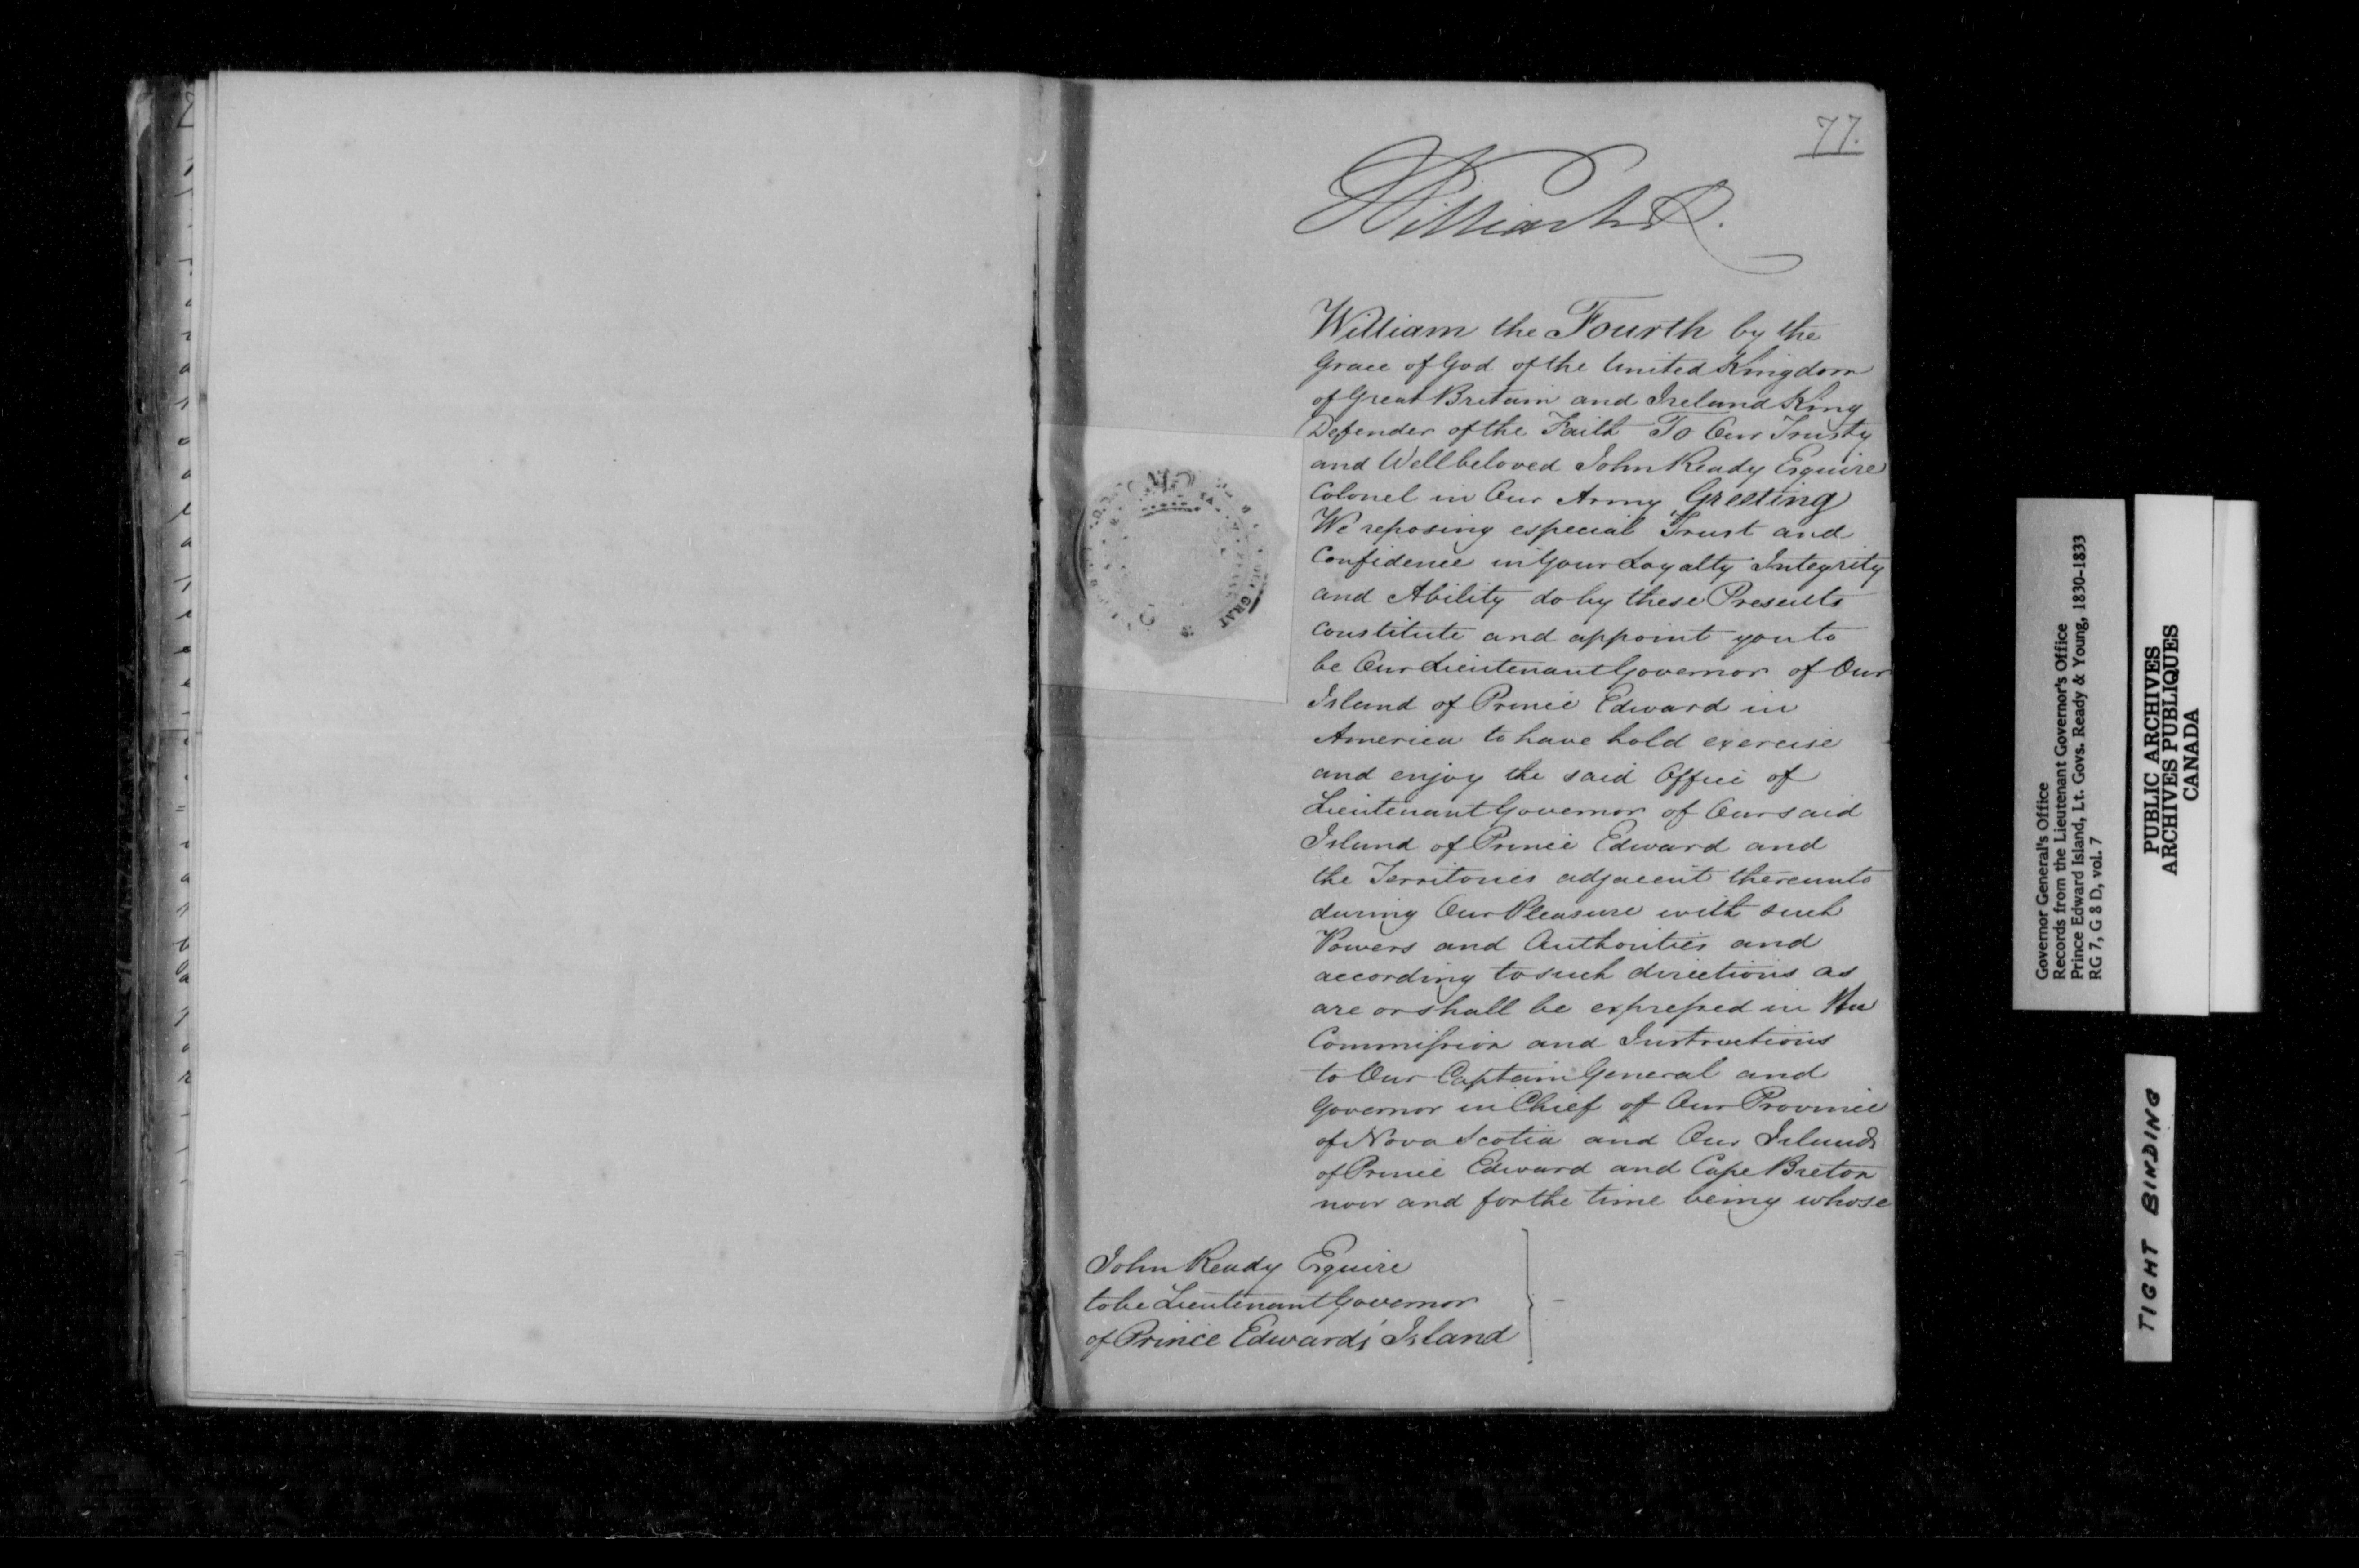 77.
William R.
William the Fourth by the
Grace of God of the United Kingdom
of Great Britain and Ireland King
Defender of the Faith To Our Trusty
and Wellbeloved John Ready Esquire
Colonel in Our Army Greeting
We reposing especial Trust and
Confidence in Your Loyalty Integrity
and Ability do by these Presents
constitute and appoint you to
be Our Lieutenant Governor of Our
Island of Prince Edward in
America to have hold exercise
and enjoy the said Office of
Lieutenant Governor of Our said
Island of Prince Edward and
the Territories adjacent thereunto
during Our Pleasure with such
Powers and Authorities and
according to such directions as
are or shall be expressed in the
Commission and Instructions
to Our Captain General and
Governor in Chief of Our Province
of Nova Scotia and Our Islands
of Prince Edward and Cape Breton
now and for the time being whose
John Ready Esquire
to be Lieutenant Governor
of Prince Edward's Island
GRAT
Governor General's Office
Records from the Lieutenant Governor's Office
Prince Edward Island, Lt. Govs. Ready & Young, 1830-1833
RG 7, G 8 D, vol. 7
PUBLIC ARCHIVES
ARCHIVES PUBLIQUES
CANADA
TIGHT BINDING